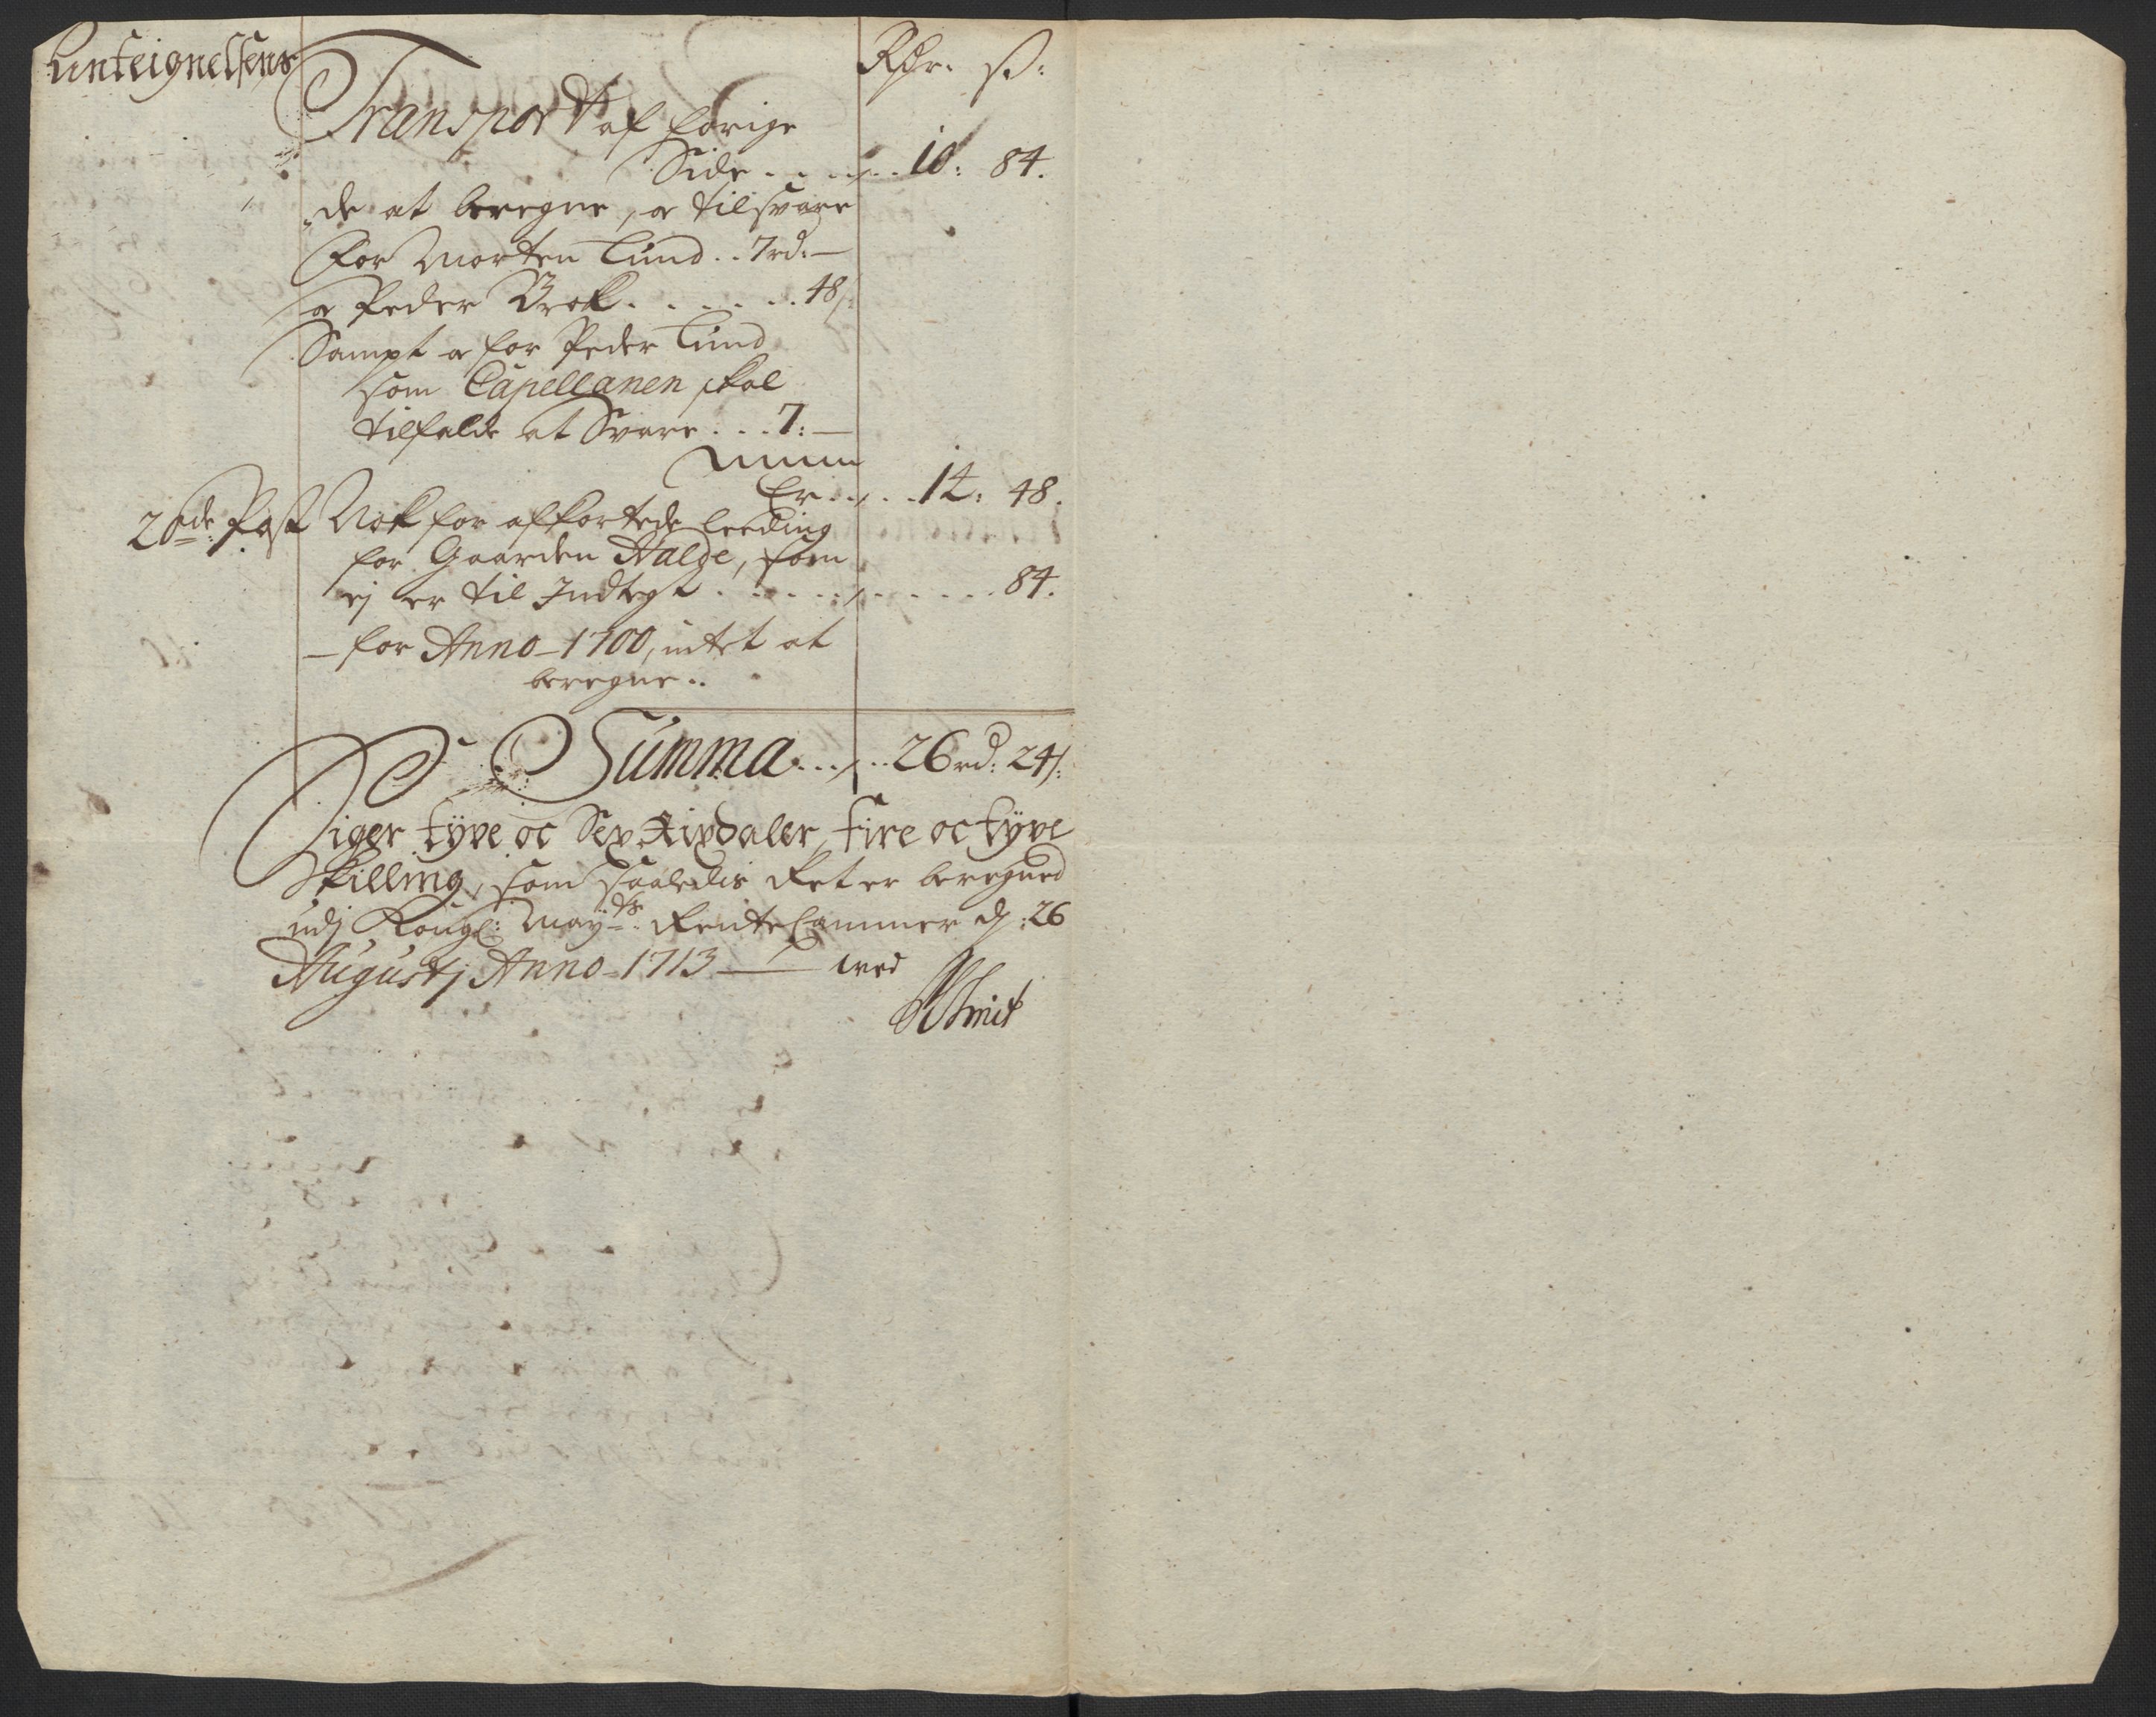 Anteignelsens
Rdr. ß:
Transport af forige
Side . . . . . 10: 84.
de at beregne, a tilsvare
for Morten Lund . . 7rd: —
a Peder Brok . . . . . . 48ß:
Sampt a for Peder Lund
som Capellanen skal
tilfalde at Svare . . . 7: —
Er . . . . 14: 48.
2den Post Nok for afkortede leeding
for Gaarden Halde, som
ej er til Indtegt . . . . . . . . . . 84.
— for Anno 1700, intet at
beregne..
Summa . . . . . 26rd: 24ß:
Siger tyve oc Sex Rixdaler, fire oc tyve
Skilling, som saaledis Ret er beregned
udj Kongl: Mayts: Rente Cammer d: 26
Augustj Anno 1713 — wed